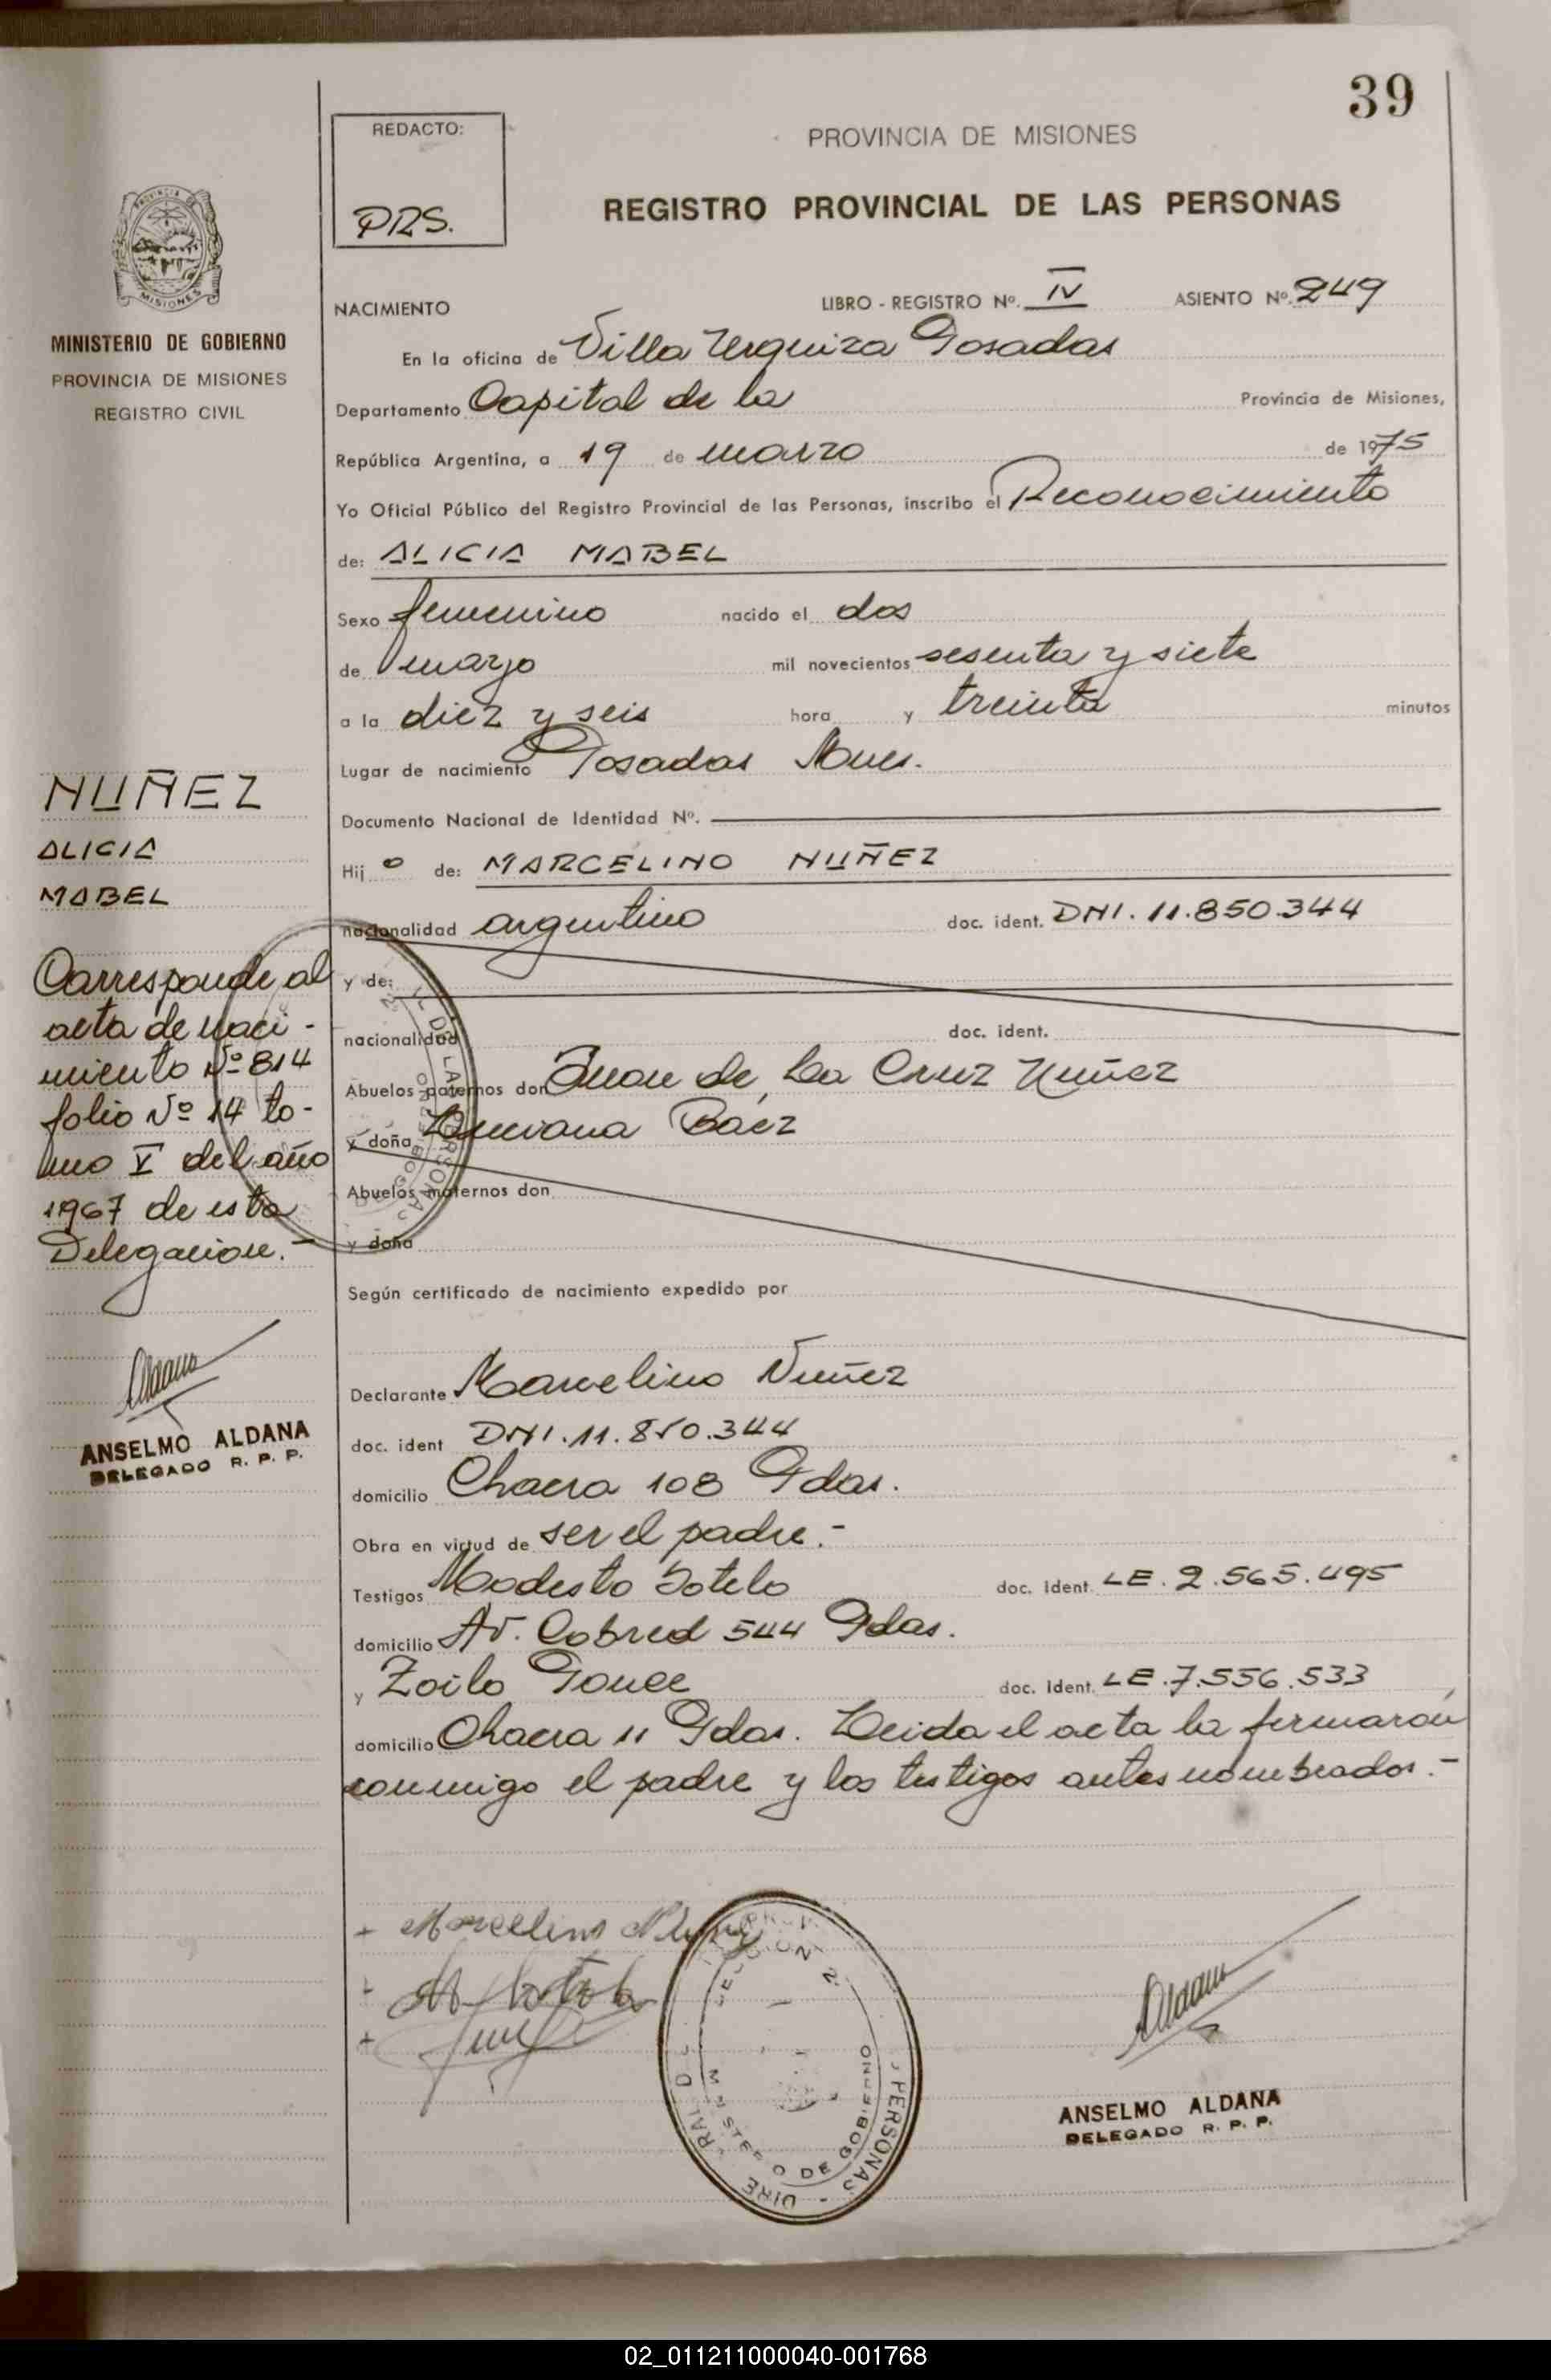 39
REDACTO:
PRS.
PROVINCIA DE MISIONES
REGISTRO PROVINCIAL DE LAS PERSONAS
MISIONES
MINISTERIO DE GOBIERNO
PROVINCIA DE MISIONES
REGISTRO CIVIL
NACIMIENTO LIBRO - REGISTRO Nº. IV ASIENTO Nº. 249
En la oficina de Villa Urquiza Posadas
Departamento Capital de la Provincia de Misiones,
República Argentina, a 19 de marzo de 1975
Yo Oficial Público del Registro Provincial de las Personas, inscribo el Reconocimiento
de: ALICIA MABEL
Sexo femenino nacido el dos
de mayo mil novecientos sesenta y siete
a la diez y seis hora y treinta minutos
Lugar de nacimiento Posadas Mnes.
Documento Nacional de Identidad Nº.
Hij o de: MARCELINO NUÑEZ
nacionalidad argentino doc. ident. DNI. 11.850.344
y de:
nacionalidad doc. ident.
Abuelos paternos don Juan de La Cruz Nuñez
y doña Baez
Abuelos maternos don
y doña
Según certificado de nacimiento expedido por
Declarante Marcelino Nuñez
doc. ident DNI. 11.850.344
domicilio Chacra 108 Pdas.
Obra en virtud de ser el padre.-
Testigos Modesto Sotelo doc. ident. LE. 2.565.495
domicilio Av. Cobred 544 Pdas.
y Zoilo Ponce doc. ident. LE. 7.556.533
domicilio Chacra 11 Pdas. Leida el acta la firmarón
conmigo el padre y los testigos antes nombrados.-
NUÑEZ
ALICIA
MABEL
Corresponde al
acta de naci-
miento Nº 814
folio Nº 14 to-
mo V del año
1967 de esta
Delegacion.-
Aldana
ANSELMO ALDANA
DELEGADO R. P. P.
+ Marcelino Nuñez
+ M Sotelo
+
PERSONAS
MINISTERIO DE GOBIERNO
Aldana
ANSELMO ALDANA
DELEGADO R. P. P.
02_011211000040-001768